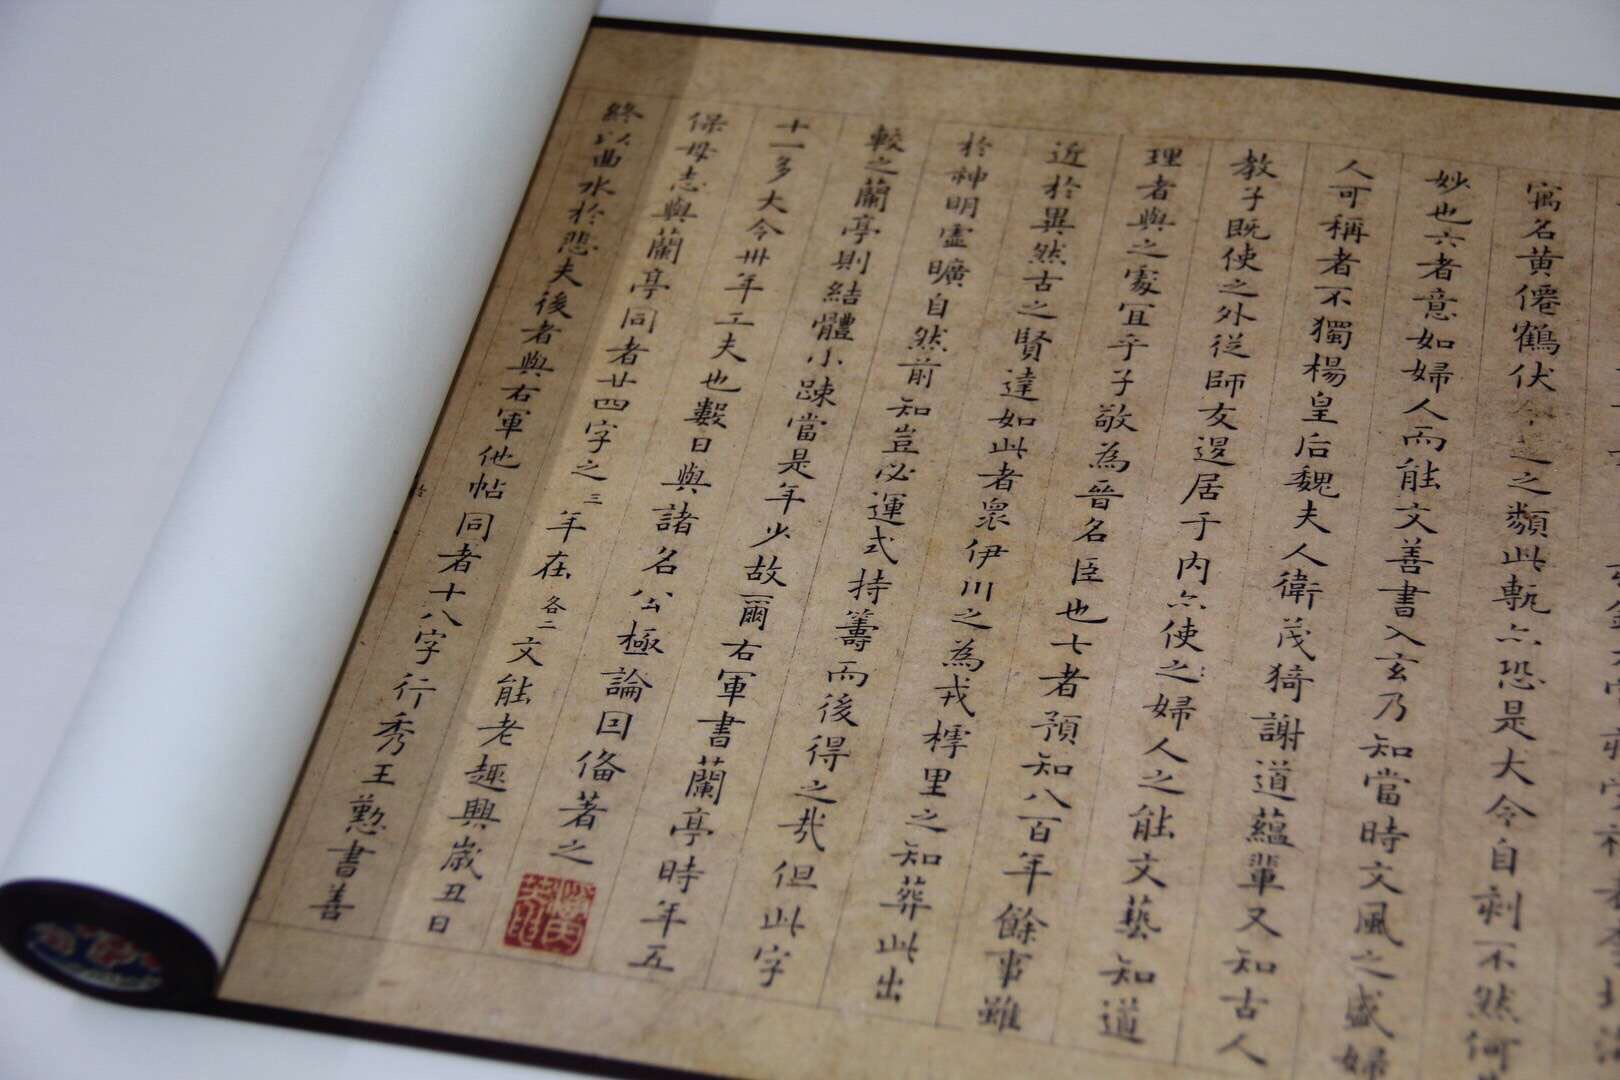 寓名黄僊鶴伏之類此亦恐是大令自刺不然何
妙也六者意如婦人而能文善書入玄乃知當時文風之盛婦
人可稱者不獨楊皇后魏夫人衛茂猗謝道蘊輩又知古人
教子既使之外從師友退居于内亦使之婦人之能文藝知道
理者與之處宜乎子敬為晉名臣也七者預知八百年餘事雖
近於異然古之賢達如此者眾伊川之為戎樗里之知葬此出
於神明虛曠自然前知豈必運式持籌而後得之哉但此字
較之蘭亭則結體小踈當是年少故爾右軍書蘭亭時年五
十一多大令卅年工夫也數日與諸名公極論因俻著之
保母志與蘭亭同者廿四字之三年在各二文能老趣興歲丑日
終以曲水於悲夫後者與右軍他帖同者十八字行秀王懃書善